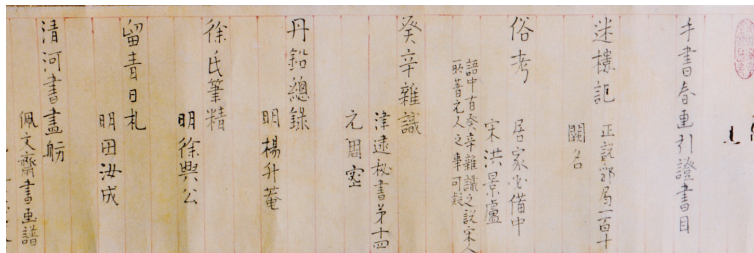 手書春画引證書目
迷樓記 正説郛局一百十
闕名
俗考 居家必備中
宋洪景盧
語中有癸辛雜識之説宋人
所著元人之事可疑
癸辛雜識
津逮秘書第十四
元周密
丹鉛總錄
明楊升菴
徐氏筆精
明徐興公
留青日札
明田汝成
清河書畫舫
佩文齋書画譜